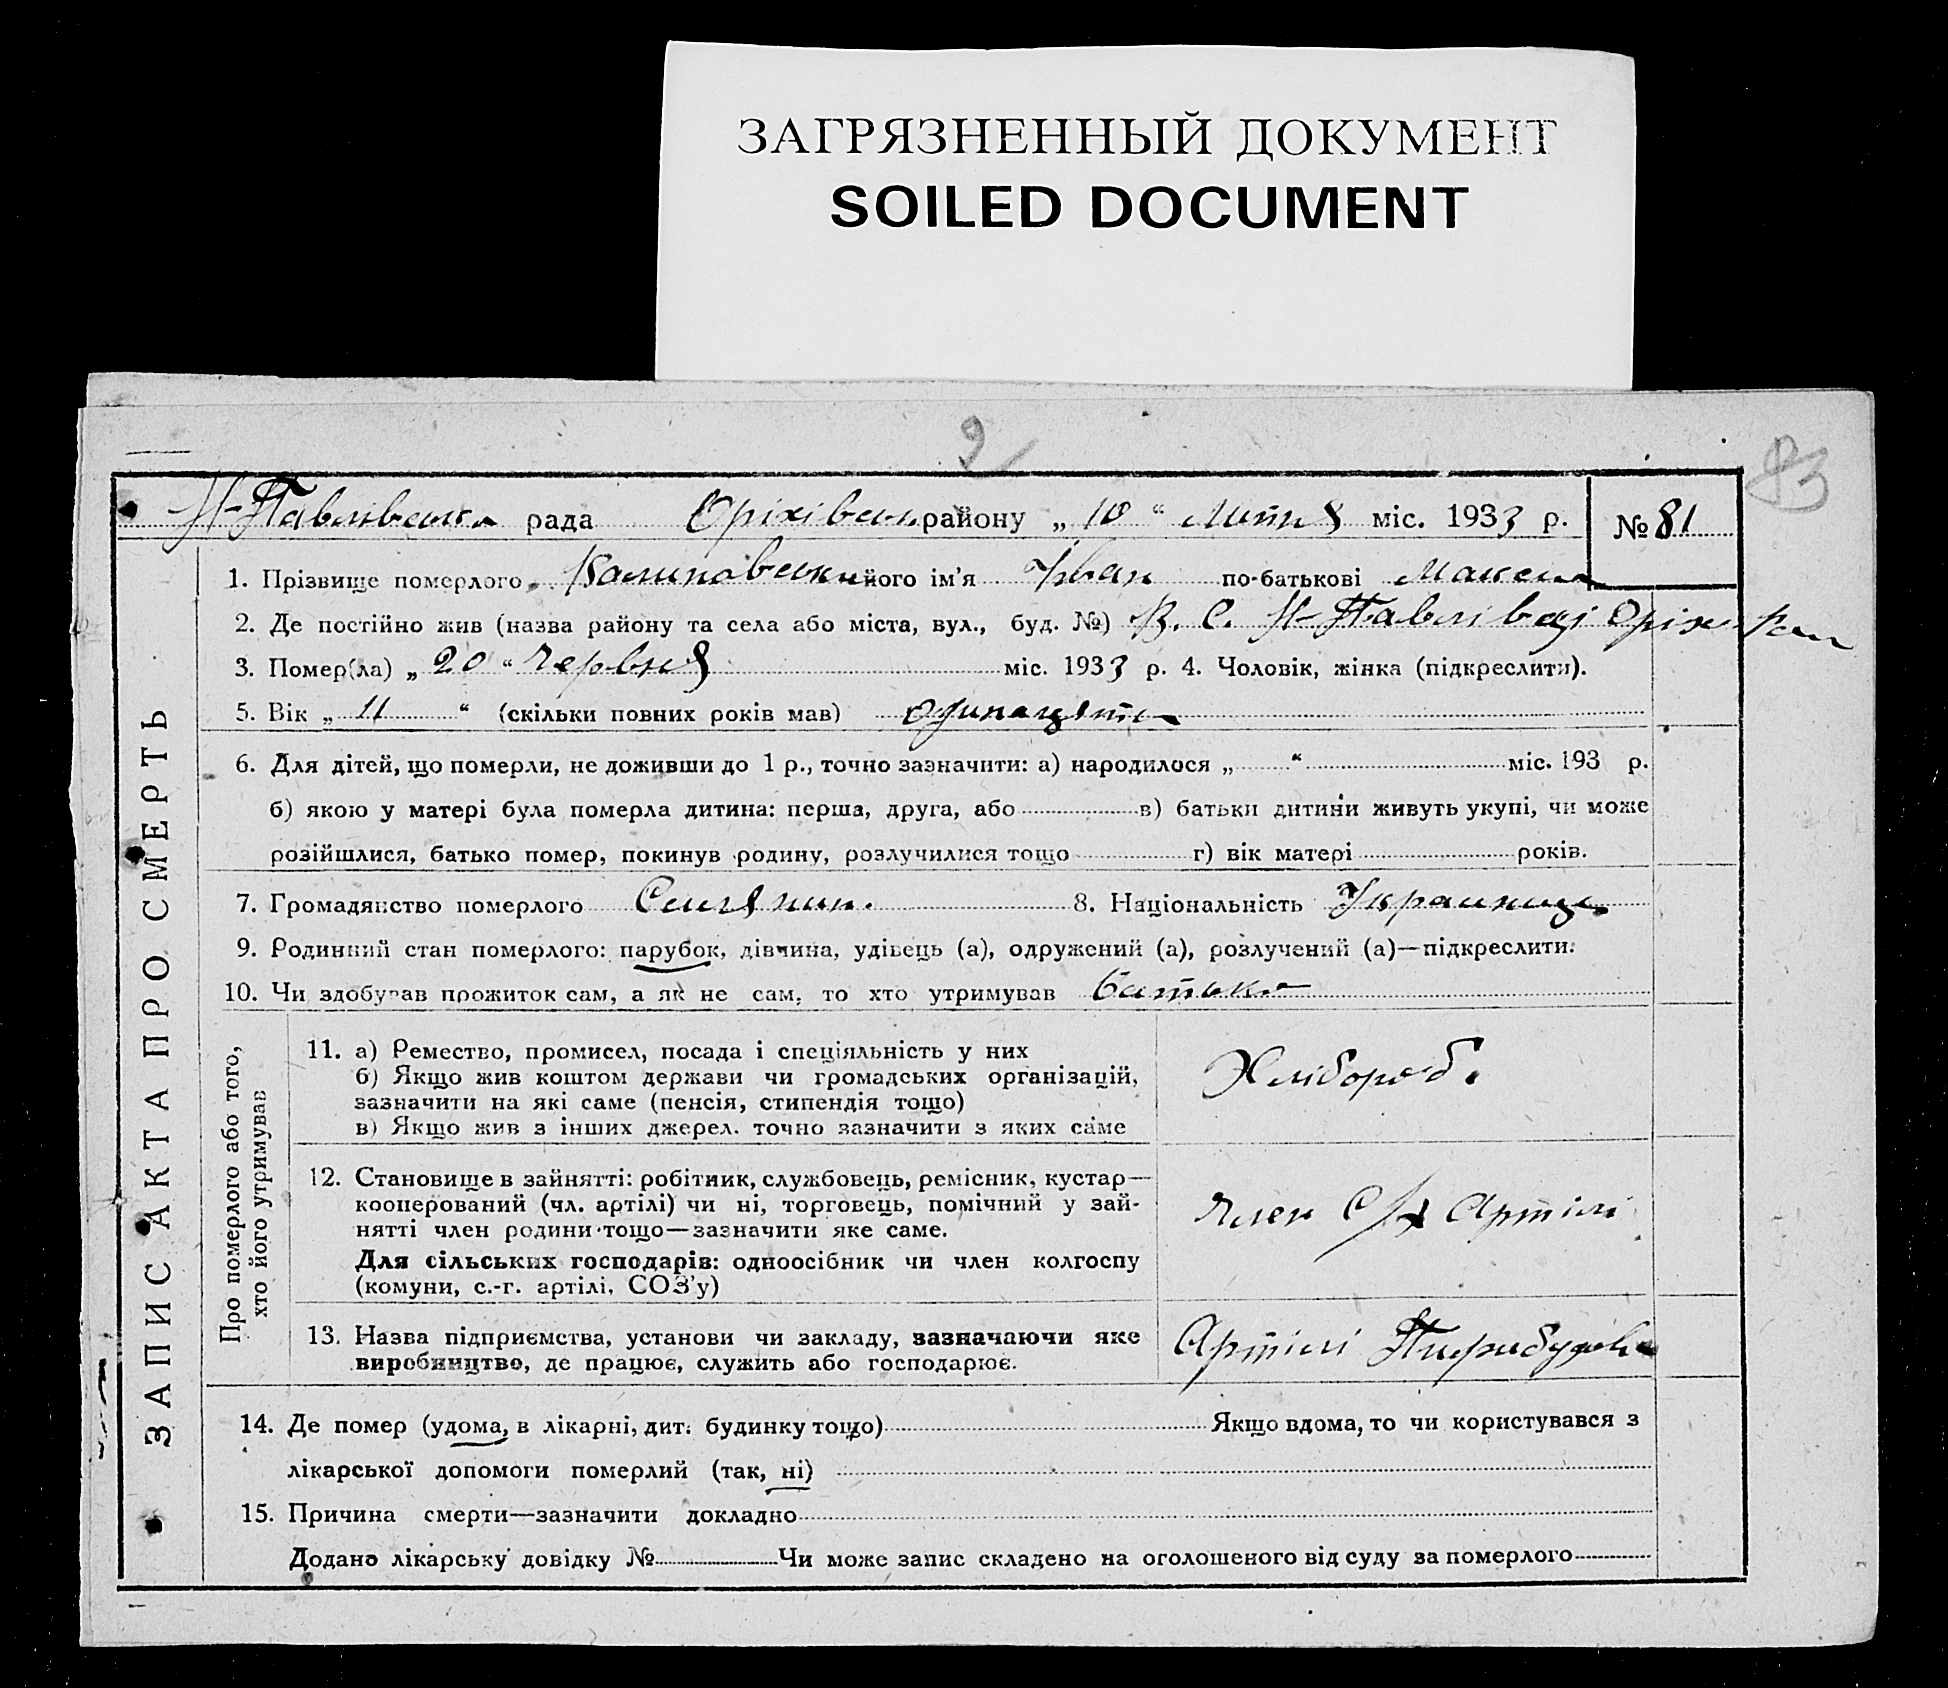 ЗАГРЯЗНЕННЫЙ ДОКУМЕНТ
SOILED DOCUMENT
9
83
Н-Павлівська рада Оріхівськ. району „ 10 “ Липня міс. 1933 р. № 81
ЗАПИС АКТА ПРО СМЕРТЬ
1. Прізвище померлого Калиновський його ім'я Іван по-батькові Максим
2. Де постійно жив (назва району та села або міста, вул., буд. №) В. С. Н-Павлівці Оріх. Рай
3. Помер(ла) „ 20 “ Червня міс. 1933 р. 4. Чоловік, жінка (підкреслити).
5. Вік „ 11 “ (скільки повних років мав) одинацять
6. Для дітей, що померли, не доживши до 1 р., точно зазначити: а) народилося „ “ міс. 193 р.
б) якою у матері була померла дитина: перша, друга, або в) батьки дитини живуть укупі, чи може
розійшлися, батько помер, покинув родину, розлучилися тощо г) вік матері років.
7. Громадянство померлого Селянин. 8. Національність Украинец
9. Родинний стан померлого: парубок, дівчина, удівець (а), одружений (а), розлучений (а)—підкреслити.
10. Чи здобував прожиток сам, а як не сам, то хто утримував батько
Про померлого або того,
хто його утримував
11. а) Ремество, промисел, посада і спеціяльність у них
б) Якщо жив коштом держави чи громадських організацій,
зазначити на які саме (пенсія, стипендія тощо)
в) Якщо жив з інших джерел. точно зазначити з яких саме
Хлібороб.
12. Становище в зайнятті: робітник, службовець, ремісник, кустар—
кооперований (чл. артілі) чи ні, торговець, помічний у зай-
нятті член родини тощо—зазначити яке саме.
Для сільських господарів: одноосібник чи член колгоспу
(комуни, с.-г. артілі, СОЗ'у)
Член С/х Артілі
13. Назва підприємства, установи чи закладу, зазначаючи яке
виробництво, де працює, служить або господарює.
Артілі
14. Де помер (удома, в лікарні, дит. будинку тощо) Якщо вдома, то чи користувався з
лікарської допомоги померлий (так, ні)
15. Причина смерти—зазначити докладно
Додано лікарську довідку № Чи може запис складено на оголошеного від суду за померлого